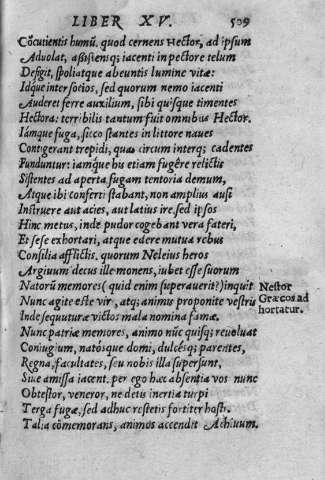 LIBER XV. 509
Cōcutientis humū. quod cernens Hector, ad ipsum
Aduolat, aßistensq; iacenti in pectore telum
Defigit, spoliatque abeuntis lumine vitæ:
Idque inter socios, sed quorum nemo iacenti
Auderet ferre auxilium, sibi quisque timentes
Hectora: terribilis tantum fuit omnibus Hector.
Iámque fuga, sicco stantes in littore naues
Contigerant trepidi, quas circum interq; cadentes
Punduntur: iamq́ue his etiam fugêre relictis
Sistentes ad aperta fugam tentoria demum,
Atque ibi conferti stabant, non amplius ausi
Instruere aut acies, aut latius ire, sed ipsos
Hinc metus, inde pudor cogebant vera fateri,
Et sese exhortari, atque edere mutua rebus
Consilia afflictis. quorum Neleius heros
Argiuum decus ille monens, iubet esse suorum
Natorū memores (quid enim superauerit?) inquit
Nunc agite este viri, atq; animis proponite vestris
Inde sequuturæ victos mala nomina famæ.
Nunc patriæ memores, animo nūc quisq; reuoluat
Coniugium, natósque domi, dulcésq; parentes,
Regna, facultates, seu nobis illa supersunt,
Siue amissa iacent. per ego hæc absentia vos nunc
Obtestor, veneror, ne detis inertia turpi
Terga fugæ, sed adhuc restetis fortiter hosti.
Talia cōmemorans, animos accendit Achiuum.
Nestor
Græcos ad
hortatur.